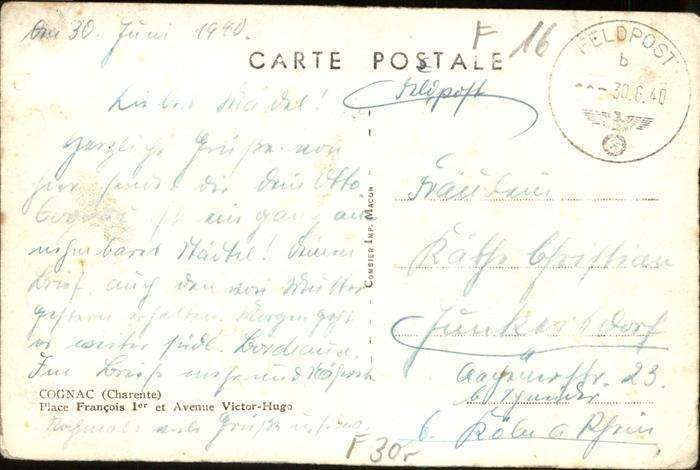 Am 30. Juni 1940.
F 16
CARTE POSTALE
Feldpost
FELDPOST
b
30.6.40
Liebes Mädel!
Herzliche Grüße von
hier sendet dir dein Otto
Cognac ist ein ganz an
nehmbares Städtel! Deinen
Brief auch den von Mutter
gestern erhalten. Morgen geht
es weiter südl. Bordeaux.
Im Briefe mehr und
Nochmals viele Grüße
COMBIER IMP. MACON
Fräulein
Käthe Christian
Junkersdorf
Aachenerstr. 23.
b. Köln a Rhein
COGNAC (Charente)
Place François 1er et Avenue Victor-Hugo
F 30